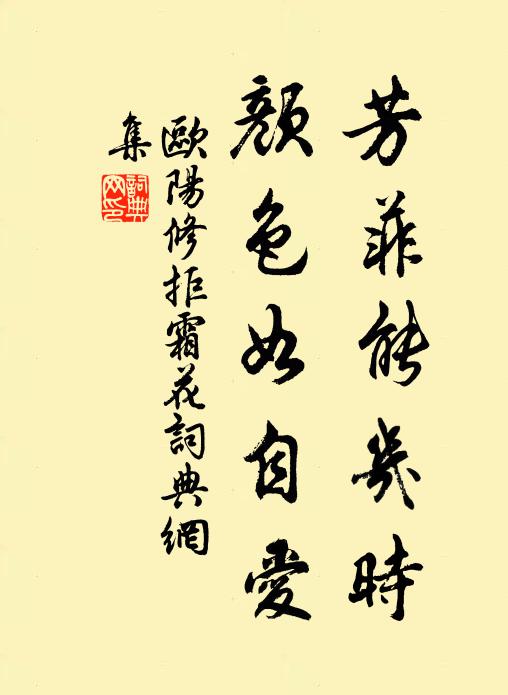 芳菲能幾時
顏色如自愛
歐陽修拒霜花詞典網
集
詞典
网印